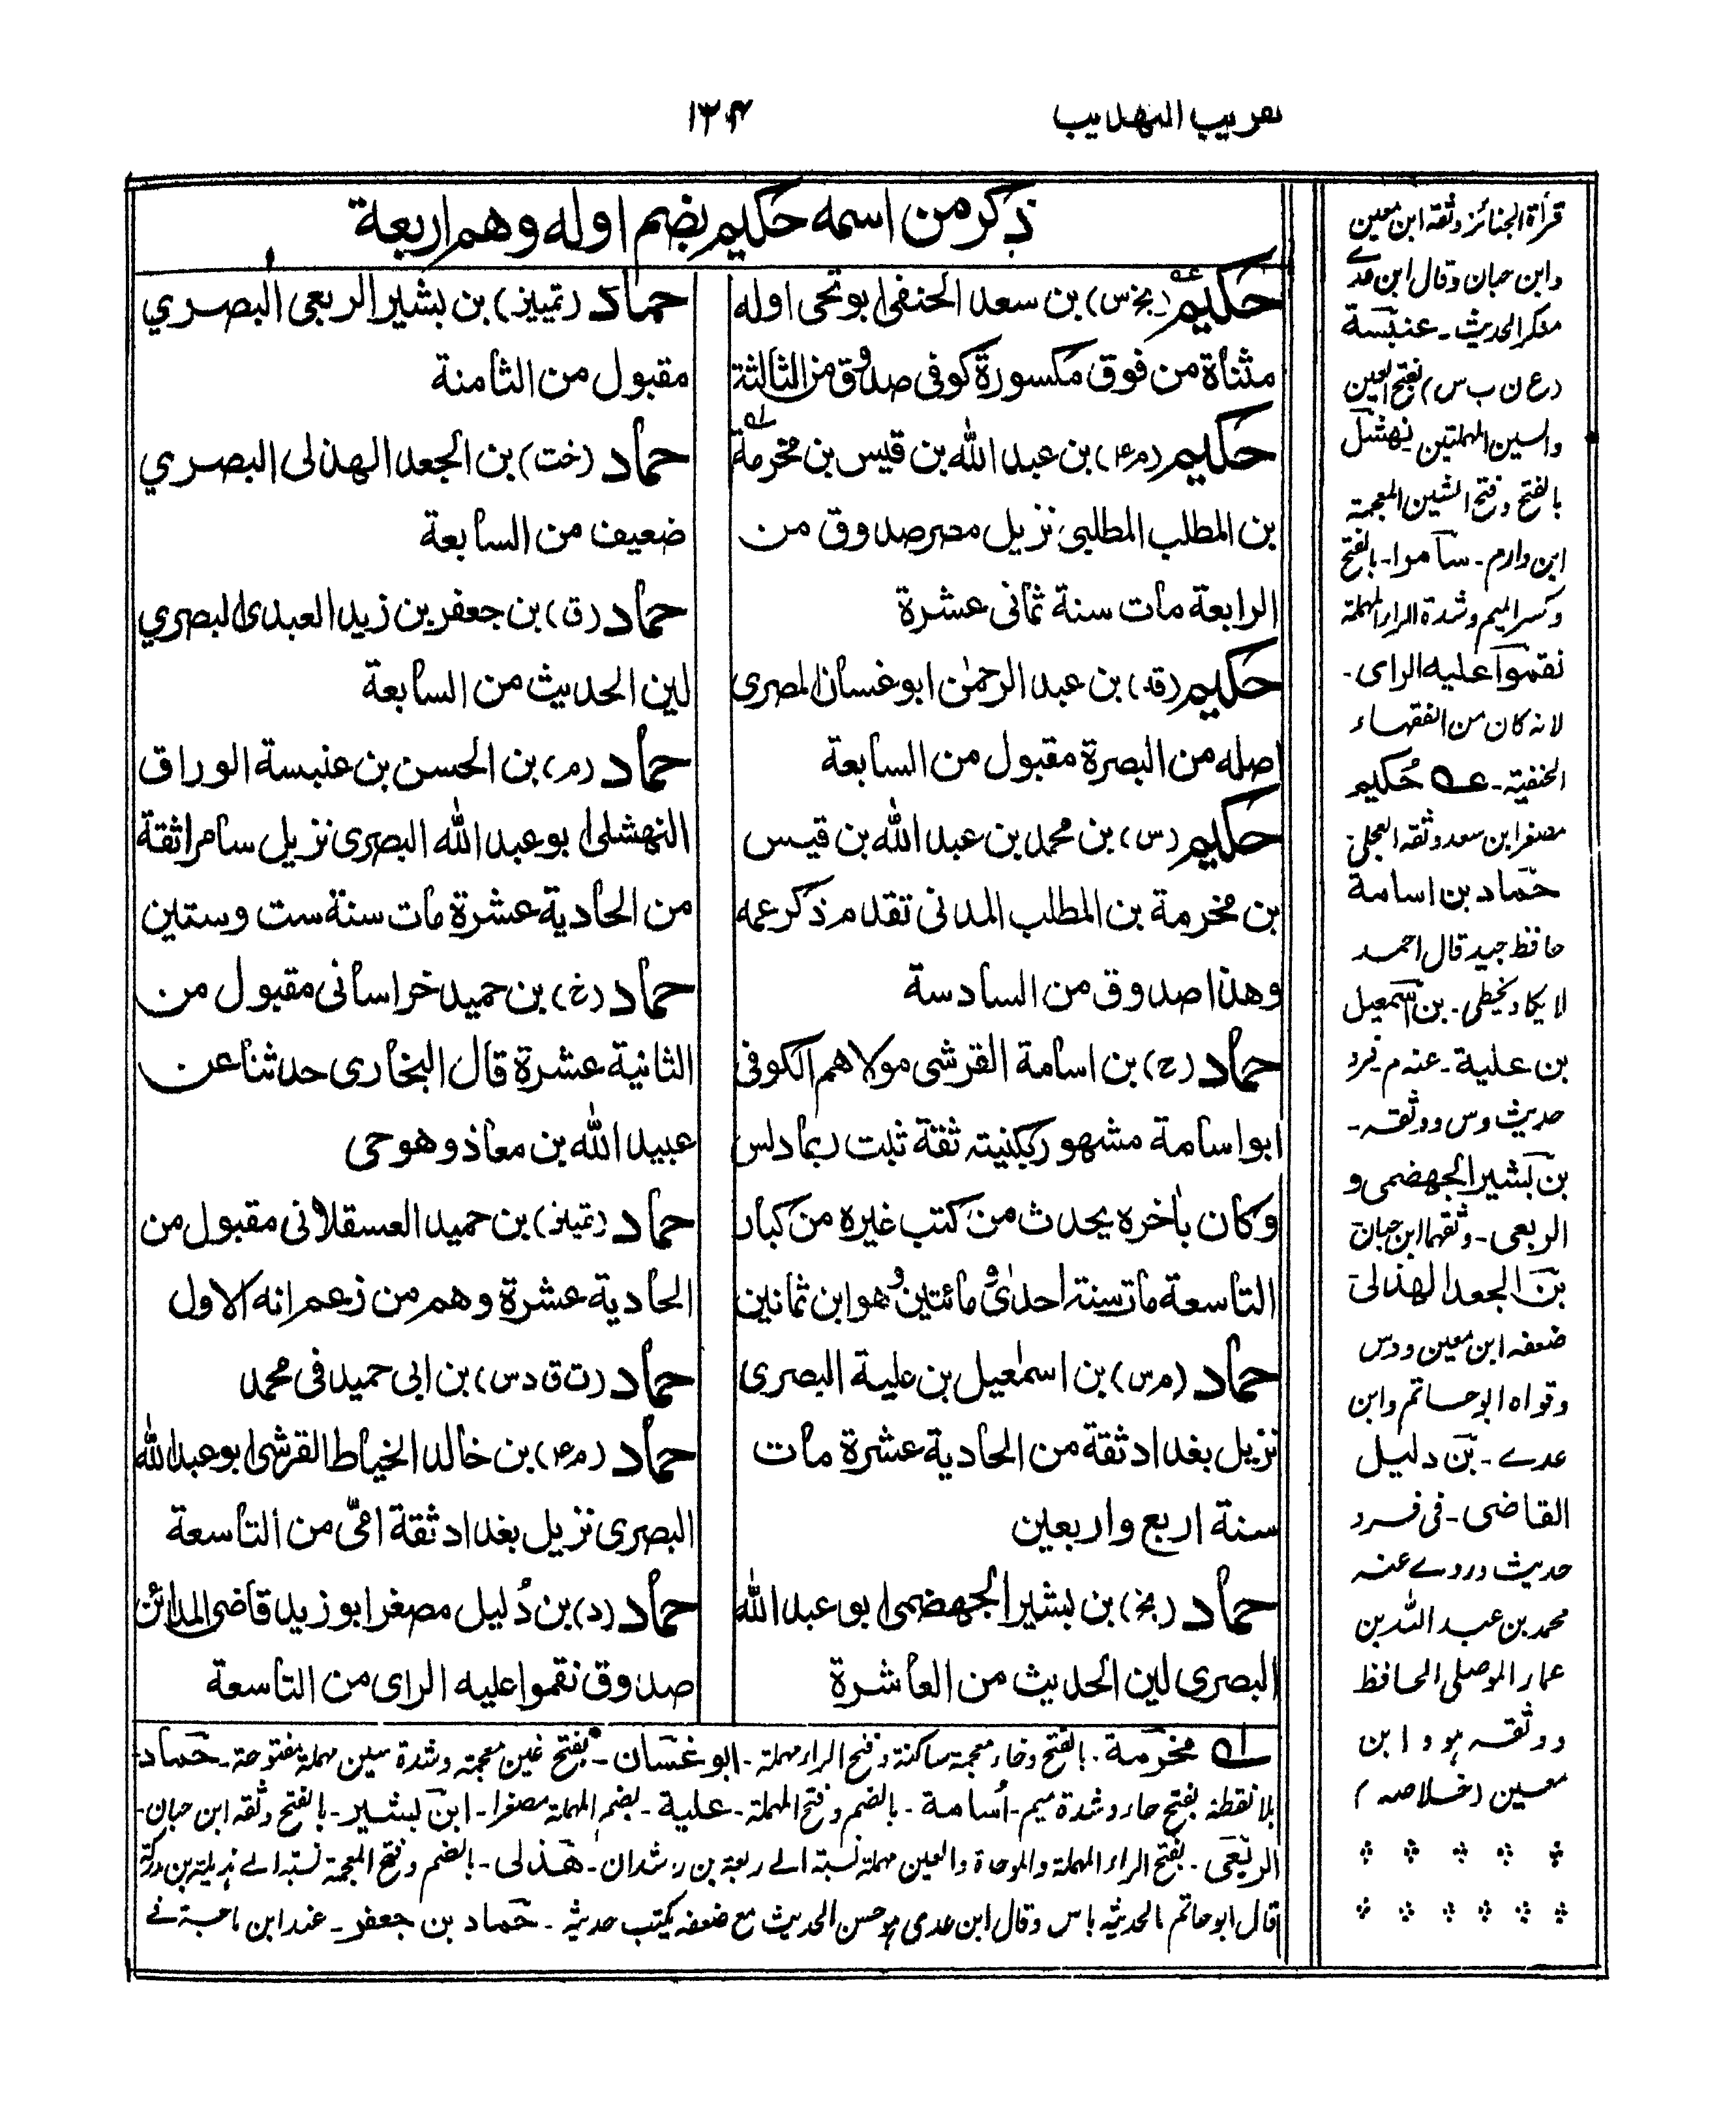 تقريب التهذيب
١٣۴
ذكر من اسمه حكيم بضم اوله وهم اربعة
حكيم (بخ س) بن سعد الحنفى ابو تحى اوله
مثناة من فوق مكسورة كوفى صدوق من الثالثة
حكيم (م ع) بن عبد الله بن قيس بن مخرمة
بن المطلب المطلبى نزيل مصر صدوق من
الرابعة مات سنة ثمانى عشرة
حكيم (قد) بن عبد الرحمٰن ابو غسان المصرى
اصله من البصرة مقبول من السابعة
حكيم (س) بن محمد بن عبد الله بن قيس
بن مخرمة بن المطلب المدنى تقدم ذكر عمه
وهذا صدوق من السادسة
حماد (ع) بن اسامة القرشى مولاهم الكوفى
ابو اسامة مشهور بكنيته ثقة ثبت ربما دلس
وكان بأخره يحدث من كتب غيره من كبار
التاسعة مات سنة احدىٰ و مائتين و هو ابن ثمانين
حماد (م س) بن اسمٰعيل بن علية البصرى
نزيل بغداد ثقة من الحادية عشرة مات
سنة اربع واربعين
حماد (بخ) بن بشير الجهضمى ابو عبد الله
البصرى لين الحديث من العاشرة
حماد (تمييز) بن بشير الربعى البصري
مقبول من الثامنة
حماد (خت) بن الجعد الهذلى البصري
ضعيف من السابعة
حماد (ق) بن جعفر بن زيد العبدى البصري
لين الحديث من السابعة
حماد (م) بن الحسن بن عنبسة الوراق
النهشلى ابو عبد الله البصرى نزيل سامرا ثقة
من الحادية عشرة مات سنة ست وستين
حماد (خ) بن حميد خراسانى مقبول من
الثانية عشرة قال البخارى حدثنا عن
عبيد الله بن معاذ وهو حى
حماد (تمييز) بن حميد العسقلانى مقبول من
الحادية عشرة وهم من زعم انه الاول
حماد (ت ق د س) بن ابى حميد فى محمد
حماد (م ع) بن خالد الخياط القرشى ابو عبد الله
البصرى نزيل بغداد ثقة امّى من التاسعة
حماد (د) بن دُليل مصغر ابو زيد قاضى المدائن
صدوق نقموا عليه الراى من التاسعة
مخرمة ۔ بالفتح وخاء معجمة ساكنة وفتح الراء مهملة ۔ ابو غسان ۔ بفتح غين معجمة وشدة سين مهملة مفتوحة ۔ حماد
بلا نقطة بفتح حاء وشدة ميم ۔ اُسامة ۔ بالضم وفتح المهملة ۔ علية ۔ بضم المهملة مصغرا ۔ ابن بشير ۔ بالفتح وثقه ابن حبان ۔
الربعى ۔ بفتح الراء المهملة والموحدة والعين مهملة نسبة الے ربعة بن رشدان ۔ هذلى ۔ بالضم وفتح المعجمة نسبة الے هذيلة بن مدركة
قال ابو حاتم بحديثه باس وقال ابن عدى هو حسن الحديث مع ضعفه يكتب حديثه ۔ حماد بن جعفر ۔ عند ابن ماجة فے
قرأة الجنائز وثقه ابن معين
وابن حبان وقال ابن عدے
منكر الحديث ۔ عنبسة
بفتح العين
والسين المهملتين نهشل
بالفتح وفتح الشين المعجمة
ابن دارم ۔ سامرا ۔ بالفتح
وكسر الميم وشدة الراء المهملة
نقموا عليه الراى ۔
لانه كان من الفقهاء
الحنفية ۔ عه حُكيم
مصغر ابن سعد وثقه العجلى ۔
حماد بن اسامة
حافظ جيد قال احمد
لا يكاد يخطى ۔ بن اسمعيل
بن علية ۔ عنه م فرد
حديث وس ووثقه ۔
بن بشير الجهضمى و
الربعى ۔ وثقهما ابن حبان
بن الجعد الهذلى
ضعفه ابن معين و د س
وقواه ابو حاتم وابن
عدے ۔ بن دليل
القاضى ۔ فى فرد
حديث وروے عنه
محمد بن عبد الله بن
عمار الموصلى الحافظ
ووثقه هو و ابن
معين (خلاصه)